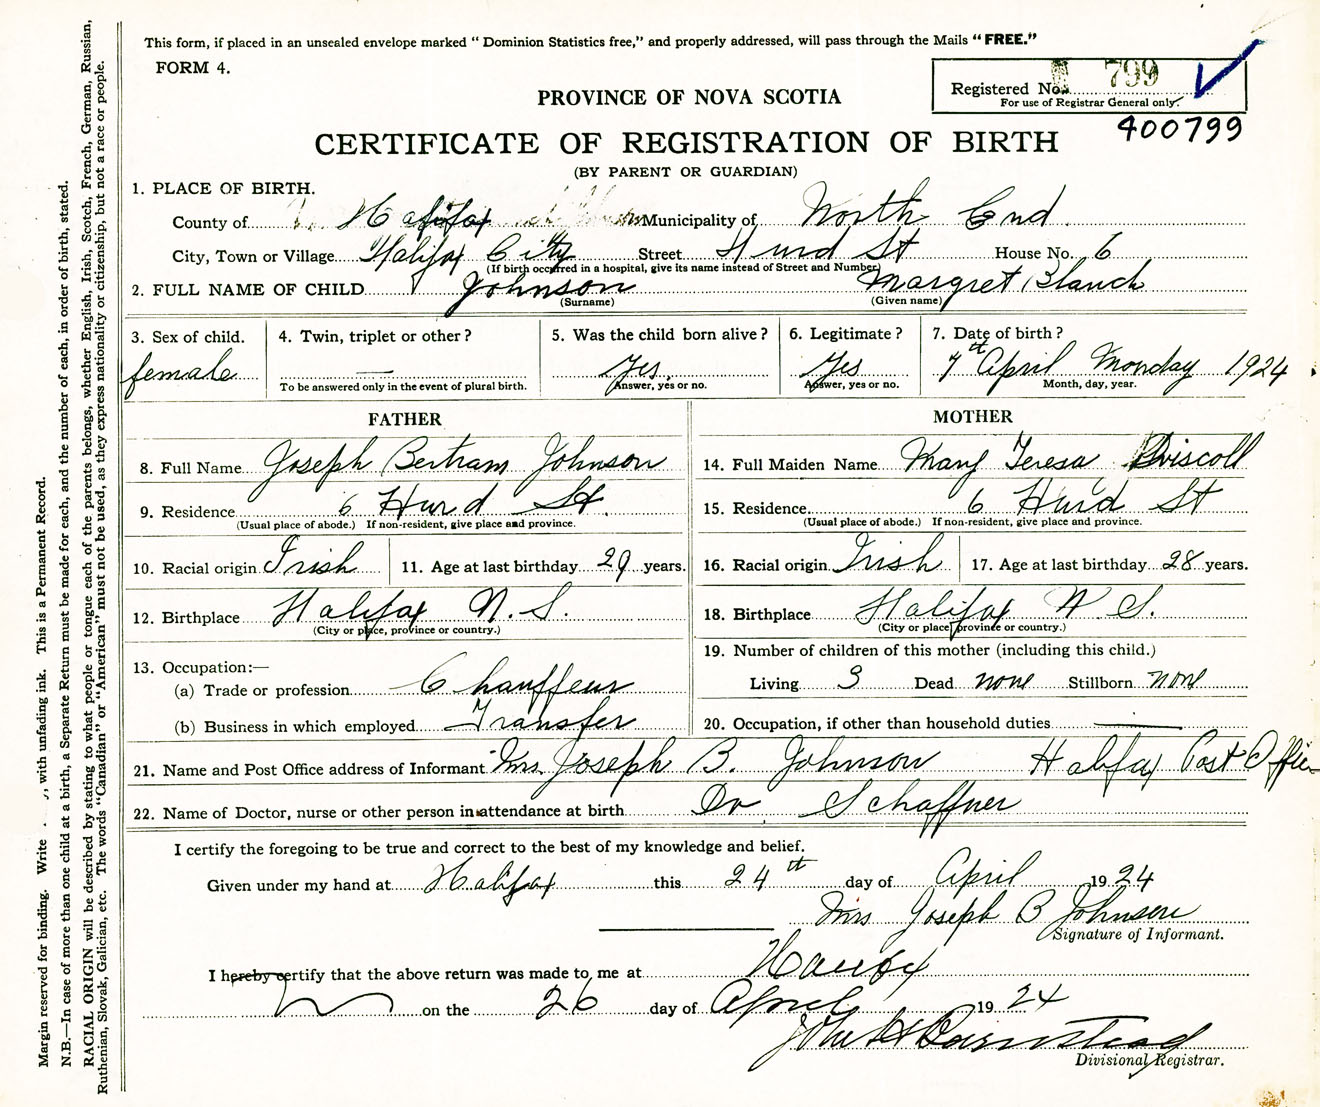 This form, if placed in an unsealed envelope marked " Dominion Statistics free," and properly addressed, will pass through the Mails "FREE."
FORM 4.
Registered No. 799
For use of Registrar General only.
400799
PROVINCE OF NOVA SCOTIA
CERTIFICATE OF REGISTRATION OF BIRTH
(BY PARENT OR GUARDIAN)
1. PLACE OF BIRTH.
County of Halifax Municipality of North End
City, Town or Village Halifax City Street Hurd St House No. 6
(If birth occurred in a hospital, give its name instead of Street and Number)
2. FULL NAME OF CHILD Johnson Margret Blanch
(Surname) (Given name)
3. Sex of child. 4. Twin, triplet or other? 5. Was the child born alive? 6. Legitimate? 7. Date of birth?
female — Yes Yes 7th April Monday 1924
To be answered only in the event of plural birth. Answer, yes or no. Answer, yes or no. Month, day, year.
FATHER
8. Full Name Joseph Bertram Johnson
9. Residence 6 Hurd St.
(Usual place of abode.) If non-resident, give place and province.
10. Racial origin Irish 11. Age at last birthday 29 years.
12. Birthplace Halifax N.S.
(City or place, province or country.)
13. Occupation:—
(a) Trade or profession Chauffeur
(b) Business in which employed Transfer
MOTHER
14. Full Maiden Name Mary Teresa Driscoll
15. Residence 6 Hurd St
(Usual place of abode.) If non-resident, give place and province.
16. Racial origin Irish 17. Age at last birthday 28 years.
18. Birthplace Halifax N S.
(City or place, province or country.)
19. Number of children of this mother (including this child.)
Living 3 Dead none Stillborn none
20. Occupation, if other than household duties —
21. Name and Post Office address of Informant Mrs. Joseph B. Johnson Halifax Post Office
22. Name of Doctor, nurse or other person in attendance at birth Dr Schaffner
I certify the foregoing to be true and correct to the best of my knowledge and belief.
Given under my hand at Halifax this 24th day of April 1924
Mrs Joseph B Johnson
Signature of Informant.
I hereby certify that the above return was made to me at Halifax
on the 26 day of April 1924
John H Barnstead
Divisional Registrar.
Margin reserved for binding. Write , with unfading ink. This is a Permanent Record.
N.B.—In case of more than one child at a birth, a Separate Return must be made for each, and the number of each, in order of birth, stated.
RACIAL ORIGIN will be described by stating to what people or tongue each of the parents belongs, whether English, Irish, Scotch, French, German, Russian,
Ruthenian, Slovak, Galician, etc. The words "Canadian" or "American" must not be used, as they express nationality or citizenship, but not a race or people.